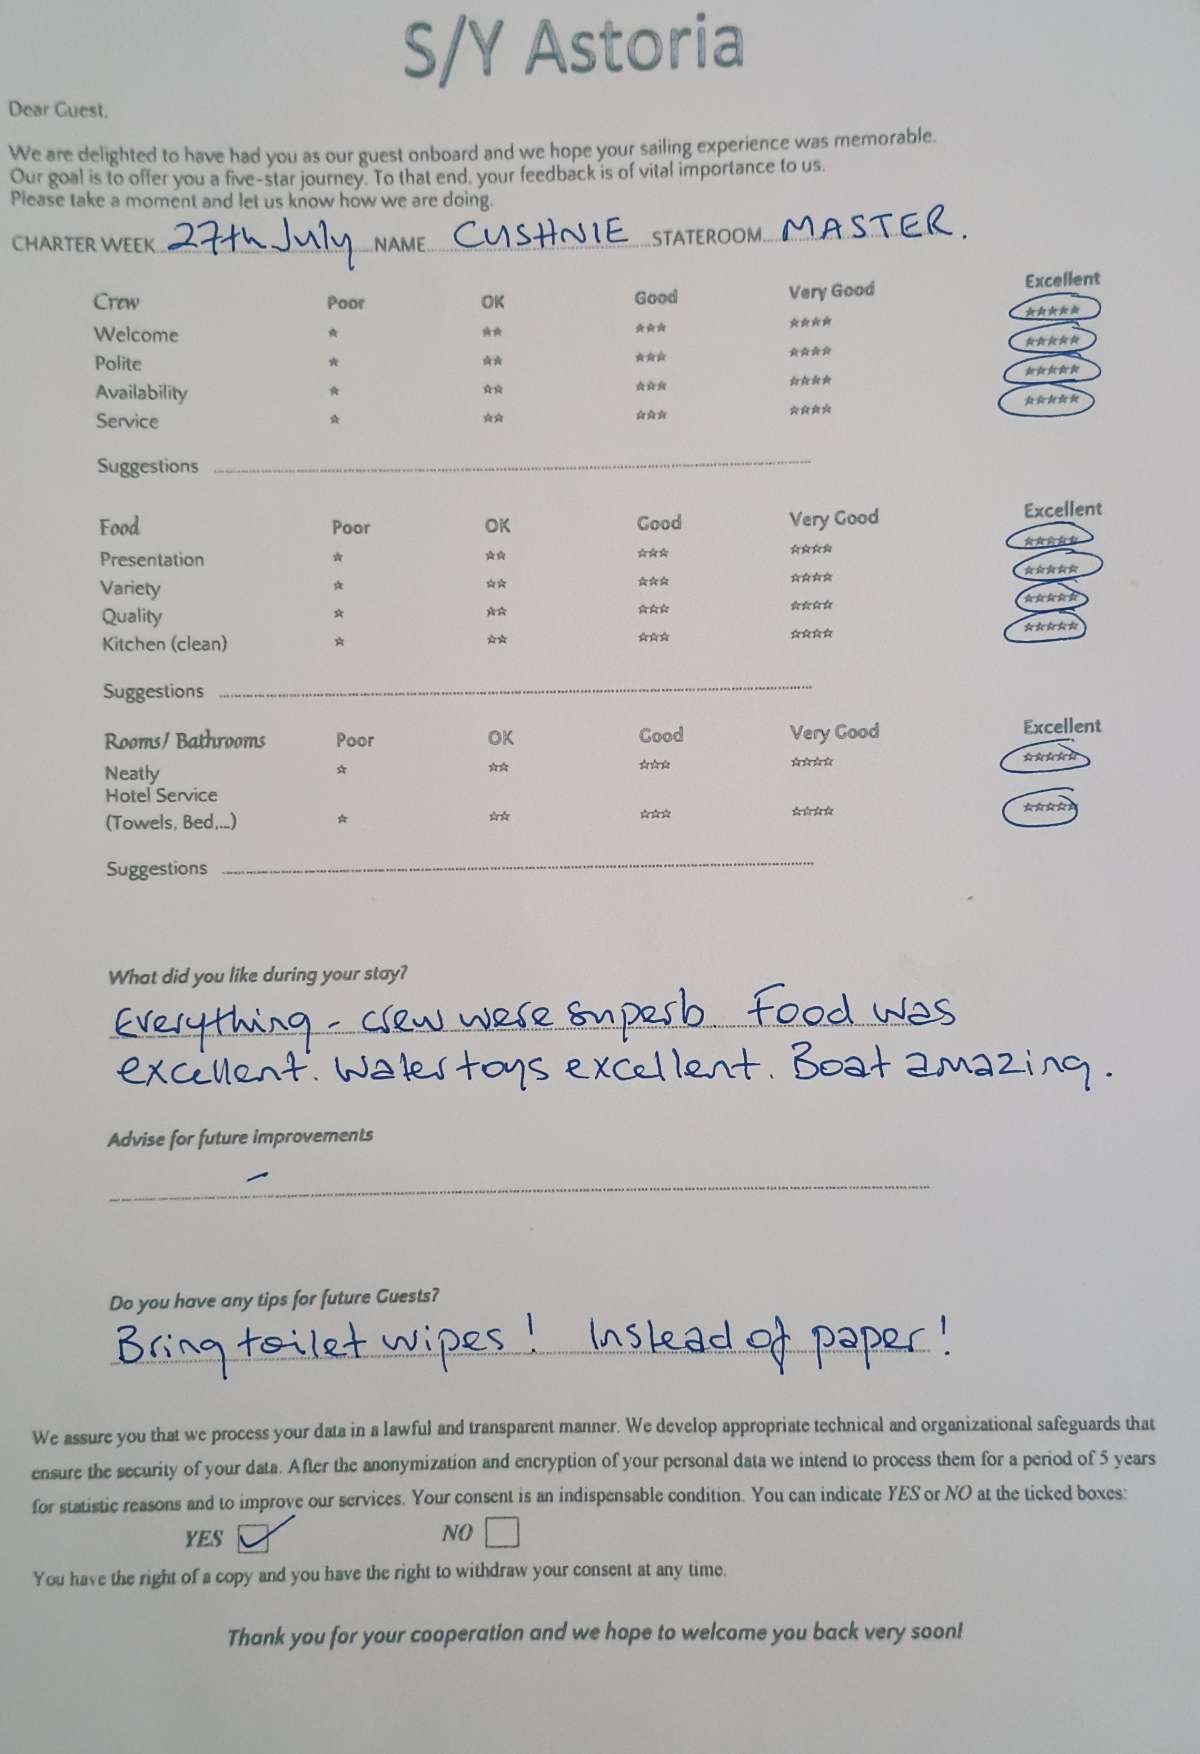 S/Y Astoria
Dear Guest,
We are delighted to have had you as our guest onboard and we hope your sailing experience was memorable.
Our goal is to offer you a five-star journey. To that end, your feedback is of vital importance to us.
Please take a moment and let us know how we are doing.
CHARTER WEEK 27th July NAME CUSHNIE STATEROOM MASTER.
Crew Poor OK Good Very Good Excellent
Welcome ★ ★★ ★★★ ★★★★ ★★★★★
Polite ★ ★★ ★★★ ★★★★ ★★★★★
Availability ★ ★★ ★★★ ★★★★ ★★★★★
Service ★ ★★ ★★★ ★★★★ ★★★★★
Suggestions
Food Poor OK Good Very Good Excellent
Presentation ☆ ☆☆ ☆☆☆ ☆☆☆☆ ☆☆☆☆☆
Variety ☆ ☆☆ ☆☆☆ ☆☆☆☆ ☆☆☆☆☆
Quality ☆ ☆☆ ☆☆☆ ☆☆☆☆ ☆☆☆☆☆
Kitchen (clean) ☆ ☆☆ ☆☆☆ ☆☆☆☆ ☆☆☆☆☆
Suggestions
Rooms/ Bathrooms Poor OK Good Very Good Excellent
Neatly ☆ ☆☆ ☆☆☆ ☆☆☆☆ ☆☆☆☆☆
Hotel Service
(Towels, Bed,...) ☆ ☆☆ ☆☆☆ ☆☆☆☆ ☆☆☆☆☆
Suggestions
What did you like during your stay?
Everything - crew were superb. Food was
excellent. Water toys excellent. Boat amazing.
Advise for future improvements
-
Do you have any tips for future Guests?
Bring toilet wipes! Instead of paper!
We assure you that we process your data in a lawful and transparent manner. We develop appropriate technical and organizational safeguards that
ensure the security of your data. After the anonymization and encryption of your personal data we intend to process them for a period of 5 years
for statistic reasons and to improve our services. Your consent is an indispensable condition. You can indicate YES or NO at the ticked boxes:
YES ☑ NO ☐
You have the right of a copy and you have the right to withdraw your consent at any time.
Thank you for your cooperation and we hope to welcome you back very soon!